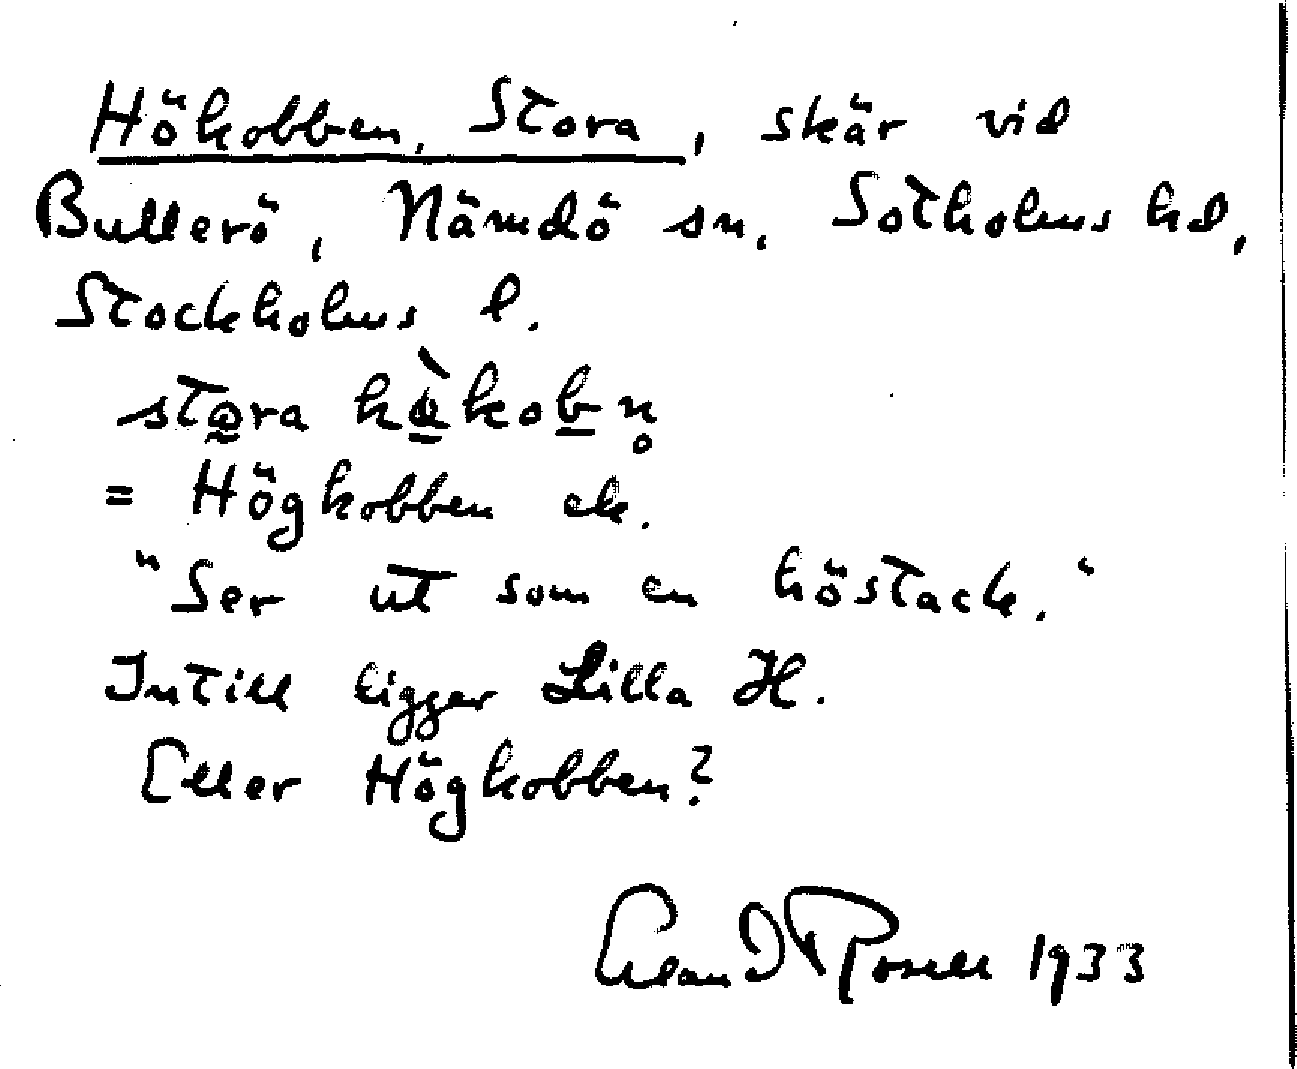 Hökobben, Stora, skär vid
Bullerö, Nämdö sn, Sotholms hd,
Stockholms l.
stora hö̀kobn̥
= Högkobben ek.
"Ser ut som en höstack."
Intill ligger Lilla H.
Eller Högkobben?
Erland Rosell 1933